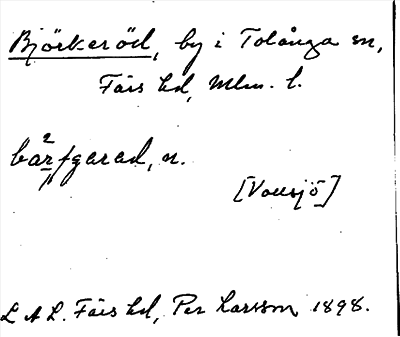 Björkeröd, by i Tolånga sn,
Färs hd, Mlm. l.
[Vollsjö]
L A L. Färs hd, Per Larsson 1898.